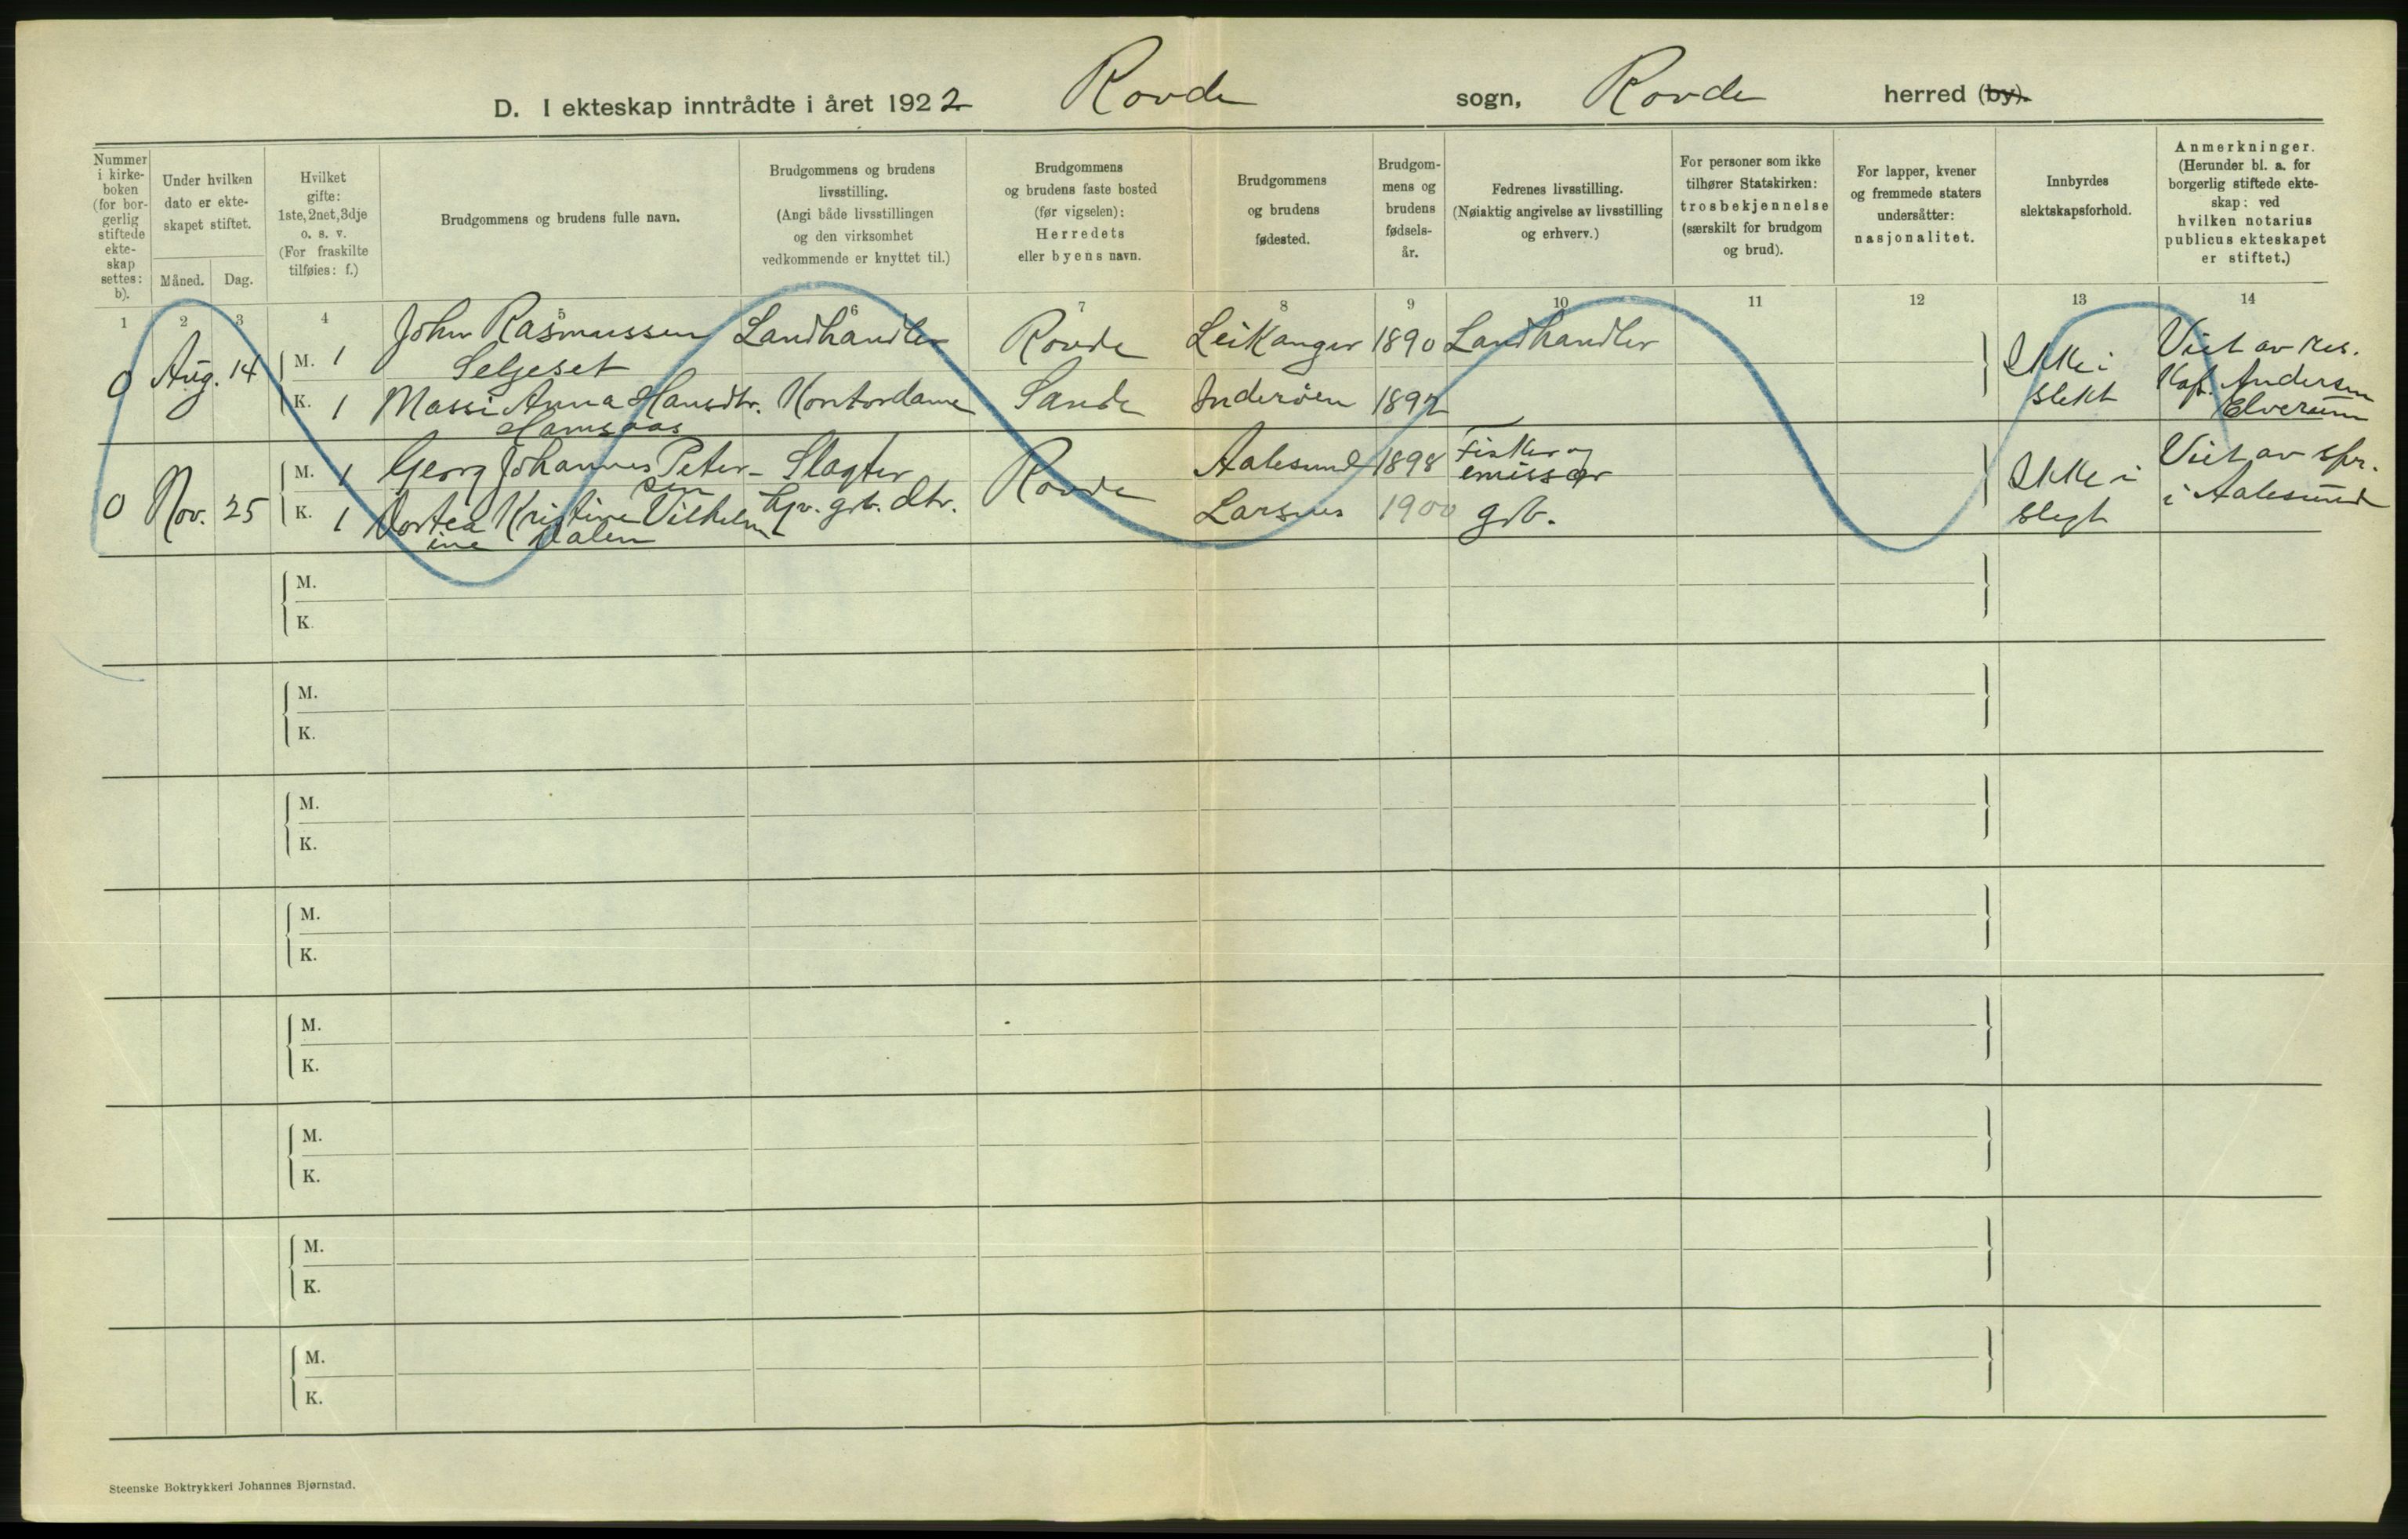 D. I ekteskap inntrådte i året 1922 Rovde sogn, Rovde herred (by).
Nummer
i kirke-
boken
(for bor-
gerlig
stiftede
ekte-
skap
settes:
b).
Under hvilken
dato er ekte-
skapet stiftet.
Måned. Dag.
Hvilket
gifte:
1ste, 2net, 3dje
o. s. v.
(For fraskilte
tilføies: f.)
Brudgommens og brudens fulle navn.
Brudgommens og brudens
livsstilling.
(Angi både livsstillingen
og den virksomhet
vedkommende er knyttet til.)
Brudgommens
og brudens faste bosted
(før vigselen):
Herredets
eller byens navn.
Brudgommens
og brudens
fødested.
Brudgom-
mens og
brudens
fødsels-
år.
Fedrenes livsstilling.
(Nøiaktig angivelse av livsstilling
og erhverv.)
For personer som ikke
tilhører Statskirken:
trosbekjennelse
(særskilt for brudgom
og brud).
For lapper, kvener
og fremmede staters
undersåtter:
nasjonalitet.
Innbyrdes
slektskapsforhold.
Anmerkninger.
(Herunder bl. a. for
borgerlig stiftede ekte-
skap: ved
hvilken notarius
publicus ekteskapet
er stiftet.)
1 2 3 4 5 6 7 8 9 10 11 12 13 14
0 Aug. 14
M. 1 John Rasmussen
Seljeset
Landhandler Rovde Leikanger 1890 Landhandler
K. 1 Massi Anna Hansdtr.
Hamsaas
Kontordame Sande Inderøen 1892
Ikke i
slekt
Viet av res.
Kap. Andersen
Elverum
0 Nov. 25
M. 1 Georg Johannes Peter-
sen
Slagter Rovde Aalesund 1898 Fisker og
emissær
K. 1 Dortea Kristine Vilhelm
ine Dalen
hjv. grb. dtr. Larsnes 1900 grb.
Ikke i
slegt
Viet av spr.
i Aalesund
M.
K.
M.
K.
M.
K.
M.
K.
M.
K.
M.
K.
M.
K.
M.
K.
Steenske Boktrykkeri Johannes Bjørnstad.